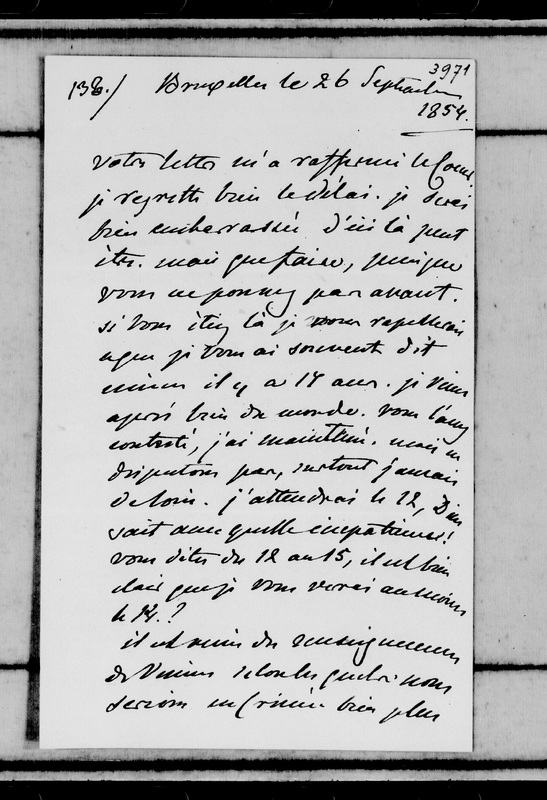 3971
138./ Bruxelles le 26 Septembre
1854.
votre lettre m'a raffermi le Coeur.
je regrette bien le délai. je serai
bien embarrassé d'ici là peut
être. mais que faire, puisque
vous ne pouvez pas avant.
si vous étiez là je vous rappellerais
que je vous ai souvent dit
même il y a 14 ans. je viens
après bien du monde. vous l'avez
contesté, j'ai maintenu. mais ne
disputons pas, surtout jamais
de loin. j'attendrai le 12, Dieu
sait avec quelle impatience!
vous dites du 12 au 15, il est bien
clair que je vous verrai au moins
le 14.?
il est venu des renseignements
de Vienne selon lesquels nous
serions en Crimée bien plus